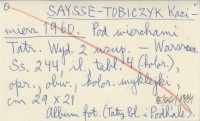 SAYSSE-TOBICZYK Kazi-
mierz 1960. Pod wierchami
Tatr. Wyd. 2 uzup. – Warszawa
Ss. 244, il. tabl. 4 (kolor.),
opr., obw., kolor. wyklejki,
cm 29 x 21
Album fot. (Tatry bl. i Podhale).